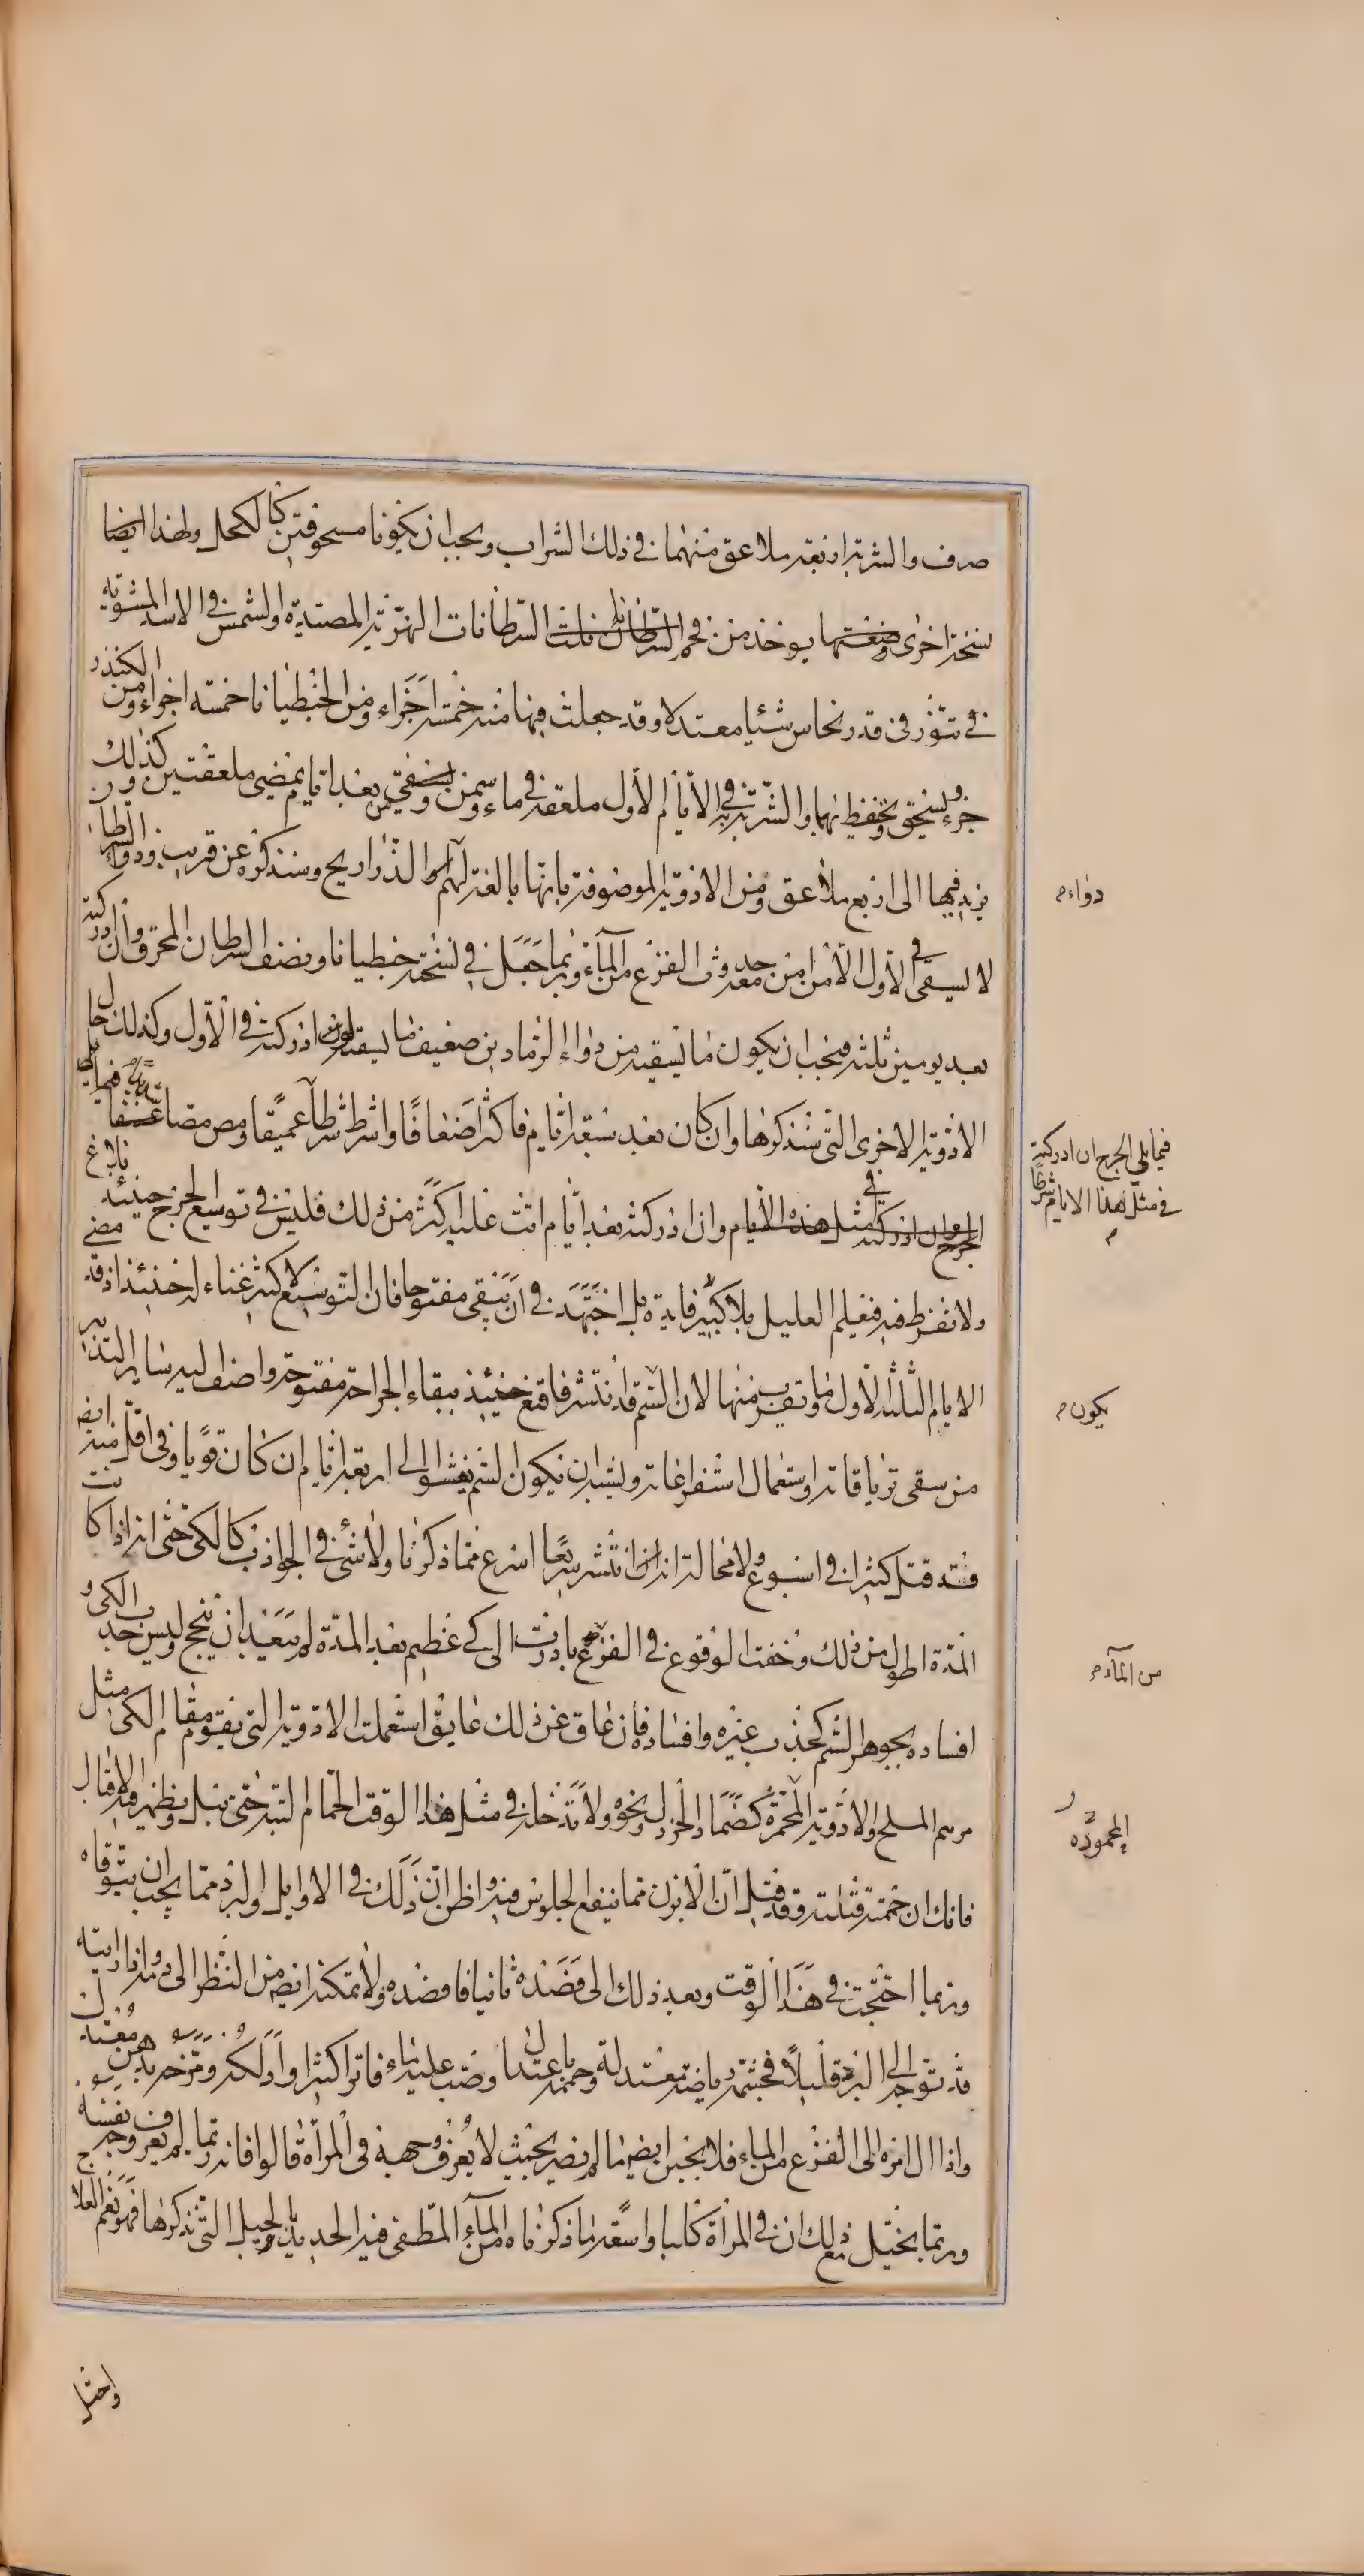 صرف والشربة اربعة ملاعق منهما في ذلك الشراب ويجب ان يكونا مسحوقتين كالكحل ولهذا ايضا
نسخة اخرى وصفتها يوخذ من فحم السرطانات النهرية المصتدية والشمس في الاسد المشوية
في تنور في قدر نحاس شيئا معتدلا وقد جعلت فيها منه خمسة اجزاء ومن الجنطيانا خمسة اجزاء ومن الكندر
جزء ويسحق ويحفظ نهما والشربة في الايام الاول ملعقة في ماء وسمن ويسقى بعد ايام يمضي ملعقتين كذلك ون
يزيد فيها الى اربع ملاعق ومن الادوية الموصوفة بانها بالغة لهم دواء الذراريح وسنذكره عن قريب ودواء السرطان
لا يسقى في الاول الا من امن حدوث الفزع من الماء وربما جعل في نسخة جنطيانا ونصف السرطان المحرق وان ادركته
بعد يومين ثلثة فيجب ان يكون ما تسقيه من دواء الرمادين ضعيف ما يسقاه لو ادركته في الاول وكذلك حال
الادوية الاخرى التي سنذكرها وان كان بعد سبعة ايام فاكثر اضعافا واشرط شرطا عميقا ومص مصا عنيفا فيما يلي
الجرح ان ادركته في مثل هذه الايام وان ادركته بعد ايام اتت عليه اكثر من ذلك فليس في توسيع الجرح حينئذ بالغ
ولا تفرط فيه فتعلم العليل بلا كبير فايدة بل اجتهد في ان يبقى مفتوحا فان التوسيع لا كثير غناء له حينئذ اذ قد مضى
الايام الثلثة الاول وما يقرب منها لان السم قد انتشر فاقنع حينئذ ببقاء الجراحة مفتوحة واضف اليه ساير التدابير
من سقى ترياقاته واستعمال استفراغاته ويشبه ان يكون السم يفشوا الى اربعة ايام ان كان قويا وفي اقل منه ايضا
فقد قتل كثيرا في اسبوع ولا محالة انه انتشر سريعا اسرع مما ذكرنا ولا شيء في الجواذب كالكى حتى انه اذا كانت
المدة اطول من ذلك وخفت الوقوع في الفزع بادرت الى كى عظيم بعد المدة لم يبعد ان ينجح وليس جذب الكى و
افساده بجوهر السم كجذب غيره وافساده فان عاق عن ذلك عايق استعملت الادوية التي يقوم مقام الكى مثل
مرهم الملح والادوية المحمرة كضماد الخردل ونحوه ولا تدخله في مثل هذا الوقت الحمام البتة حتى يبل ويظهر فيه الاقبال
فانك ان حممته قتلته وقد قيل ان الابزن مما ينفع الجلوس فيه واظن ان ذلك في الاوايل والبرد مما يجب ان يتوقاه
وربما احتجت في هذا الوقت وبعد ذلك الى فصده ثانيا فافصده ولا تمكنه ايضا من النظر الى دمه واذا رايته
قد توجه الى البرء قليلا فجشمه رياضة معتدلة وحممه باعتدال وصب عليه ماء فاترا كثيرا وادلكه ومرخه بدهن معتدل
واذا ال امره الى الفزع من الماء فلا يجبن ايضا ما لم يصر بحيث لا يعرف وجهه في المرآة قالوا فانه ربما لم يعرف وجه نفسه
وربما يخيل مع ذلك ان في المرآة كلبا واسقه ما ذكرناه من الماء المطفى فيه الحديد بالحيل التي نذكرها فهو نعم العلاج
دواء م
فيما يلي الجرح ان ادركته
في مثل هذا الايام شرطا
م
يكون م
من الماء م
المحمودة
واحتل